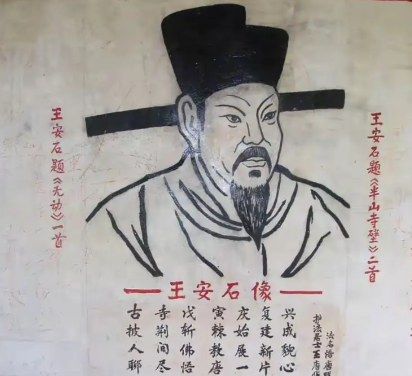 王安石题《无动》一首
王安石题《半山寺壁》二首
王安石像
古寺戊寅庆复兴
披荆新棘始建成
人间佛教展新貌
聊尽悟唐一片心
护法居士王唐